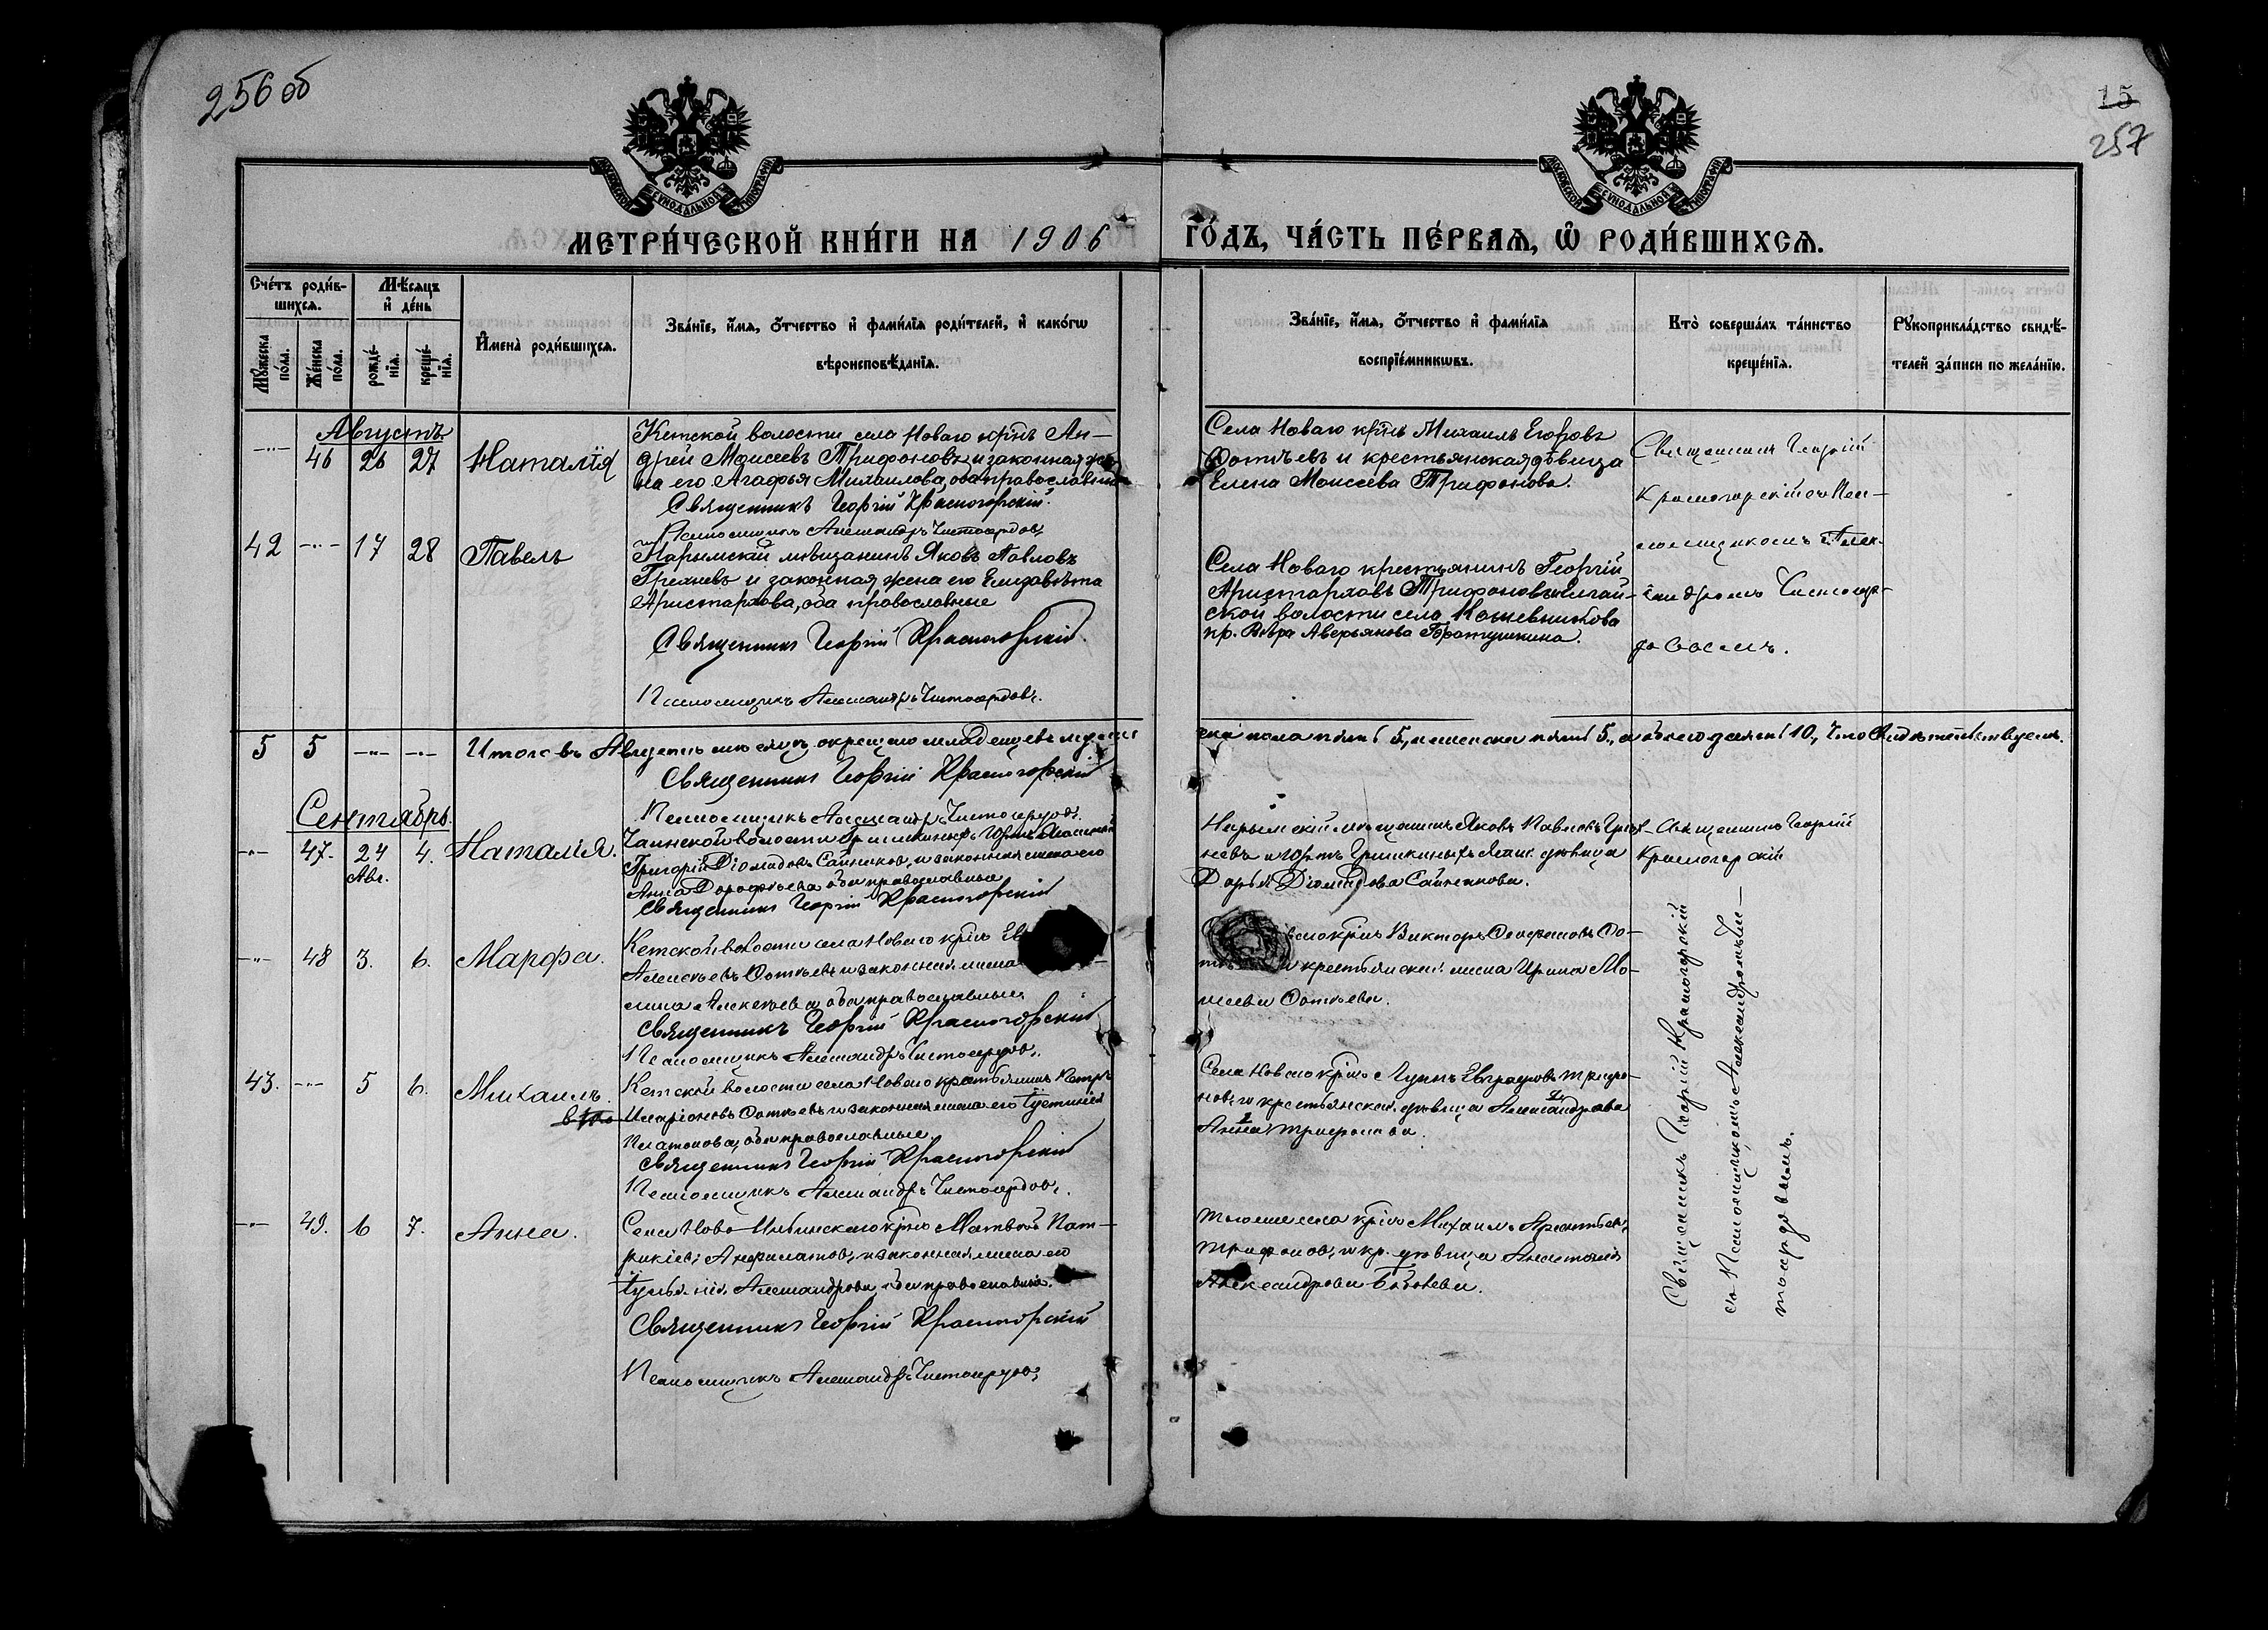 256 об
15
257
МОСКОВСКОЙ СУНОДАЛЬНОЙ ТИПОГРАФІИ
МОСКОВСКОЙ СУНОДАЛЬНОЙ ТИПОГРАФІИ
МЕТРИ́ЧЕСКОЙ КНИ́ГИ НА 1906 ГО́ДЪ, ЧА́СТЬ ПЕ́РВАѦ, Ѡ҆ РОДИ́ВШИХСѦ.
Сче́тъ роди́в-
шихсѧ.
Мѣ́сѧцъ
и҆ де́нь
Мꙋ́жеска
по́ла.
Же́нска
по́ла.
рожде́-
нїѧ.
креще́-
нїѧ.
И҆мена̀ роди́вшихсѧ.
Зва́нїе, и҆́мѧ, ѻ҆́тчество и҆ фами́лїѧ роди́телей, и҆ како́гѡ
вѣроисповѣ́данїѧ.
Зва́нїе, и҆́мѧ, ѻ҆́тчество и҆ фами́лїѧ
воспрїе́мникѡвъ.
Кто̀ соверша́лъ та́инство
креще́нїѧ.
Рꙋкоприкла́дство свидѣ́-
телей за́писи по жела́нїю.
Августъ.
-"- 46 26 27 Наталія
Кетской волости села Новаго крнъ Ан-
дрей Моисеевъ Трифоновъ и законная же-
на его Агафья Михаилова, оба православные
Священникъ Георгій Красногорскій.
Псаломщикъ Александръ Чистосердовъ
Села Новаго крнъ Михаилъ Егоровъ
Фотѣевъ и крестьянская дѣвица
Елена Моисеева Трифонова.
Священникъ Георгій
Красногорскій съ Пса-
ломщикомъ Алек-
сандромъ Чистосер-
довымъ.
42 -"- 17 28 Павелъ
Нарымскій мѣщанинъ Яковъ Павловъ
Греѣневъ и законная жена его Елизавѣта
Аристархова, оба православные
Священникъ Георгій Красногорскій.
Псаломщикъ Александръ Чистосердовъ.
Села Новаго крестьянинъ Георгій
Аристарховъ Трифоновъ и
ской волости села
кр. Вѣра Аверьянова
5 5 -"- -"- Итого въ Августѣ мѣсяцѣ окрещено младенцевъ мужес-
ска пола пять 5, и женска пять 5, а обоего десять 10, Что Свидѣтельствуемъ.
Священникъ Георгій Красногорскій
Псаломщикъ Александръ Чистосердовъ.
Сентябрь.
-"- 47. 24 4. Наталія.
Авг.
Чаинской волости юртъ
Григорій Діомидовъ и законная жена его
Анна Дорофѣева оба православные
Священникъ Георгій Красногорскій
Нарымскій мѣщанинъ Яковъ Павловъ
невъ и юртъ дѣвица
Дарья Діомидова
Священникъ Георгій
Красногорскій
-"- 48 3. 6. Марфа.
Кетской волости села Новаго крнъ
Алексѣевъ Фотѣевъ и законная жена
Алексѣева оба православные
Священникъ Георгій Красногорскій
Псаломщикъ Александръ Чистосердовъ.
крнъ Викторъ Фо-
и крестьянская жена Ирина Мо-
исеева Фотѣева.
43. -"- 5 6. Михаилъ.
Кетской волости села Новаго крестьянинъ Петръ
Иларіоновъ Фотѣевъ и законная жена его Іустинія
Платонова, оба православные.
Священникъ Георгій Красногорскій
Псаломщикъ Александръ Чистосердовъ.
Села Новаго крнъ Трифо-
новъ и крестьянская дѣвица Александрова
Анна Трифонова.
Священникъ Георгій Красногорскій
съ Псаломщикомъ Александромъ Чис-
тосердовымъ.
-"- 49. 6 7. Анна.
Села Ново-Ильинскаго крнъ Матвѣй Пат-
рикіевъ и законная жена его
Александрова, оба православные.
Священникъ Георгій Красногорскій
Псаломщикъ Александръ Чистосердовъ
Того же села крнъ Михаилъ
Трифоновъ и кр. дѣвица Анастасія
Александрова